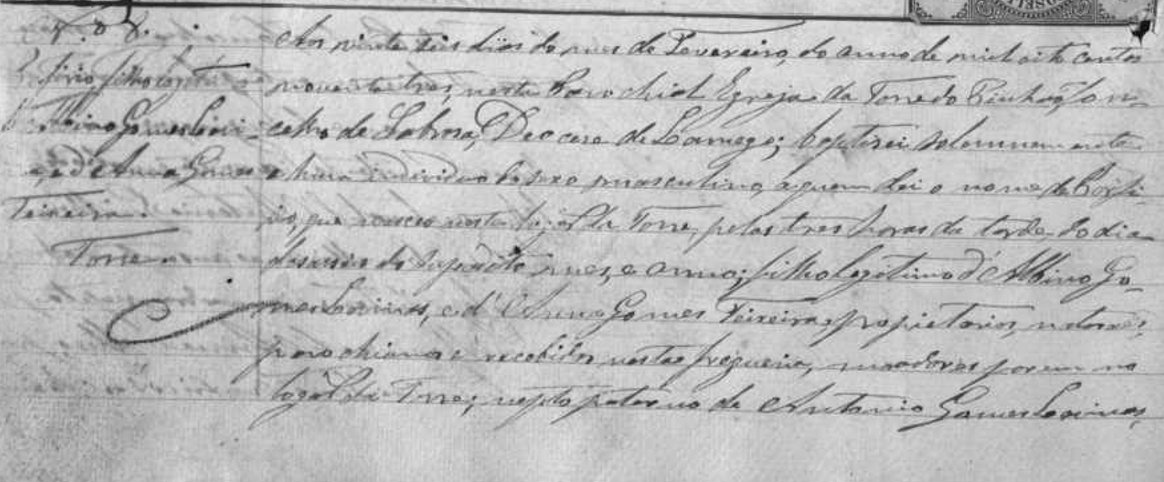 N.º 8.
Porfirio, filho legitimo
d'Albino Gomes
e d'Anna Gomes
Teixeira.
Torre
Aos vinte seis dias do mes de Fevereiro, do anno de mil oito centos
noventa tres, nesta Parochial Egreja da Torre do Pinhão, Con-
celho de Sabrosa, Diocese de Lamego; baptisei solemnemente
a hum individuo do sexo masculino, a quem dei o nome de Porfi-
rio, que nasceu neste logar da Torre, pelas tres horas da tarde do dia
desasseis do supradito mes, e anno; filho legitimo d'Albino Go-
mes, e d'Anna Gomes Teixeira, propietarios, naturaes,
parochianos e recebidos nesta freguezia, moradores porem no
logar da Torre; nepto paterno de Antonio Gomes